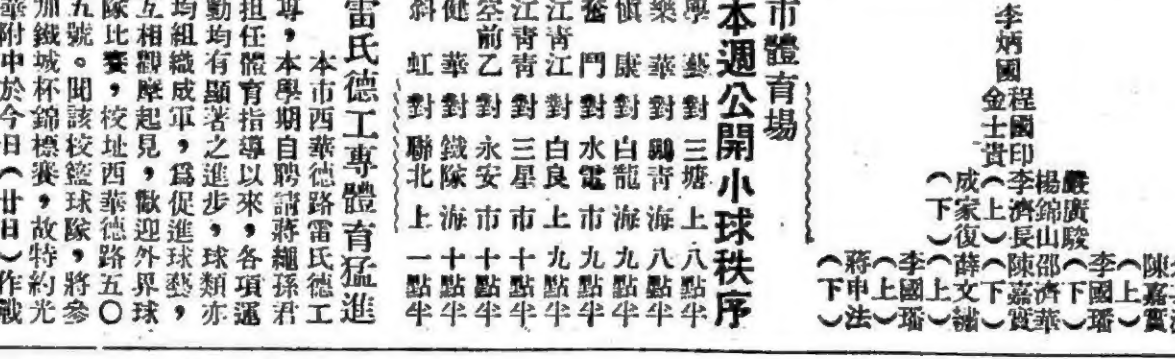 陳嘉寶
（上）
李國璠
嚴廣駿（下）
楊錦山邵濟華
李炳國
程國印李濟長陳嘉寶
金士貴（上）（下）
成家復薛文繡
（下）（上）
李國璠
（上）
蔣申法
（下）
市體育場
本週公開小球秩序
學藝對三塘上八點半
樂華對青海八點半
慎康對白龍海九點半
奮鬥對水電市九點半
江青江對白良上九點半
江青青對三星市十點半
空前乙對永安市十點半
健華對鐵隊海十點半
斜虹對聯北上一點半
雷氏德工專體育猛進
本市西華德路雷氏德工
專，本學期自聘請蔣繩孫君
担任體育指導以來，各項運
動均有顯著之進步，球類亦
均組織成軍，爲促進球藝，
互相觀摩起見，歡迎外界球
隊比賽，校址西華德路五〇
五號。聞該校籃球隊，將參
加鐵城杯錦標賽，故特約光
華附中於今日（廿日）作戰